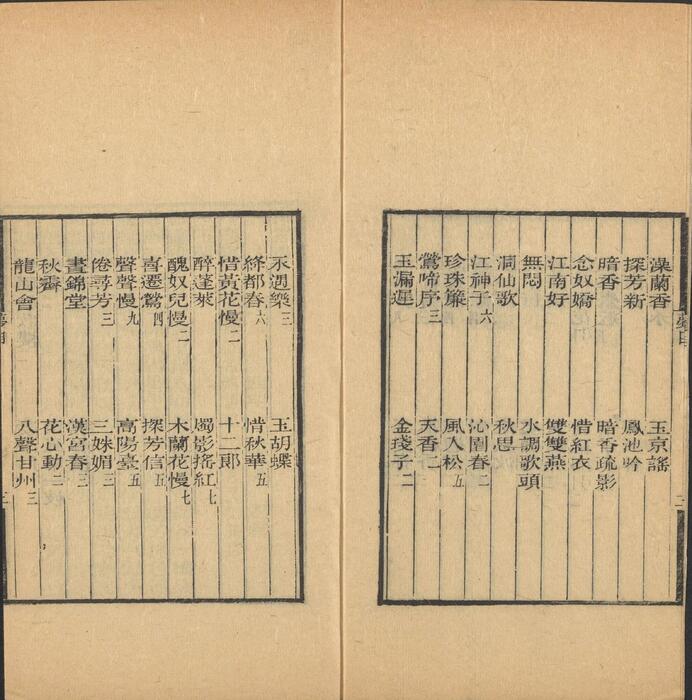 澡蘭香 玉京謠
探芳新 鳳池吟
暗香 暗香疏影
念奴嬌 惜紅衣
江南好 雙雙燕
無悶 水調歌頭
洞仙歌 秋思
江神子六 沁園春二
珍珠簾 風入松五
鶯啼序三 天香二
玉漏遲 金琖子二
永遇樂三 玉胡蝶
絳都春六 惜秋華五
惜黃花慢二 十二郎
醉蓬萊 燭影搖紅七
醜奴兒慢二 木蘭花慢七
喜遷鶯四 探芳信五
聲聲慢九 高陽臺五
倦尋芳三 三姝媚三
晝錦堂 漢宮春三
秋霽 花心動二
龍山會 八聲甘州三